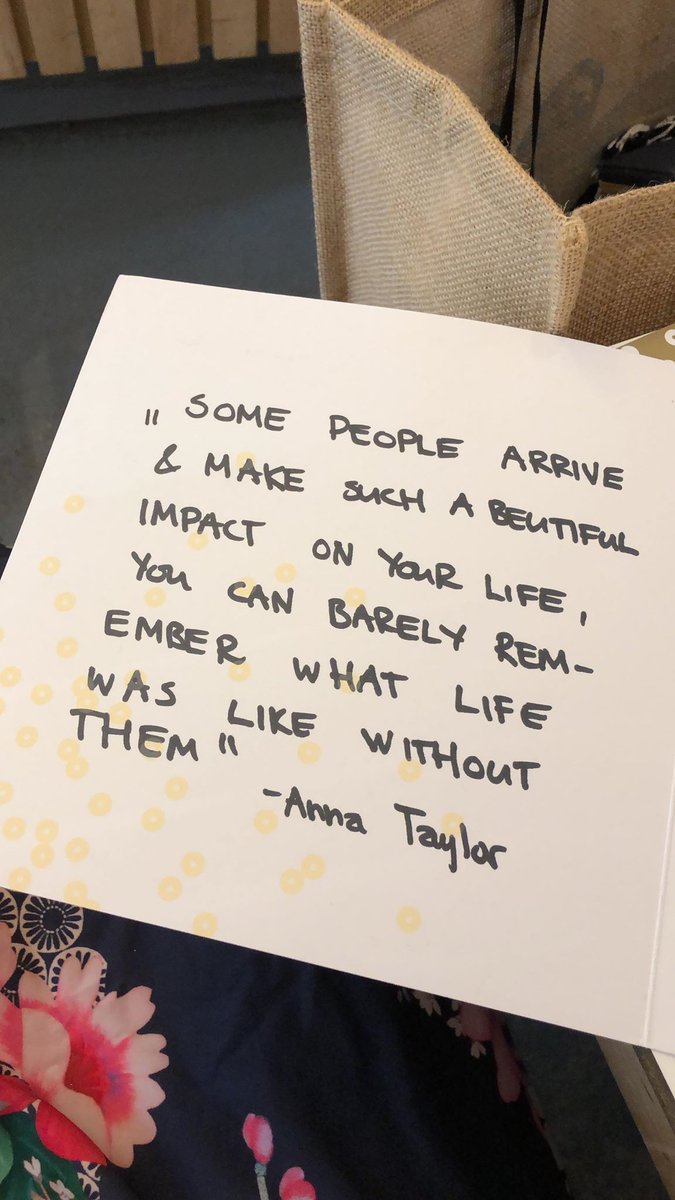 " SOME PEOPLE ARRIVE
& MAKE SUCH A BEUTIFUL
IMPACT ON YOUR LIFE,
YOU CAN BARELY REM-
EMBER WHAT LIFE
WAS LIKE WITHOUT
THEM "
-Anna Taylor